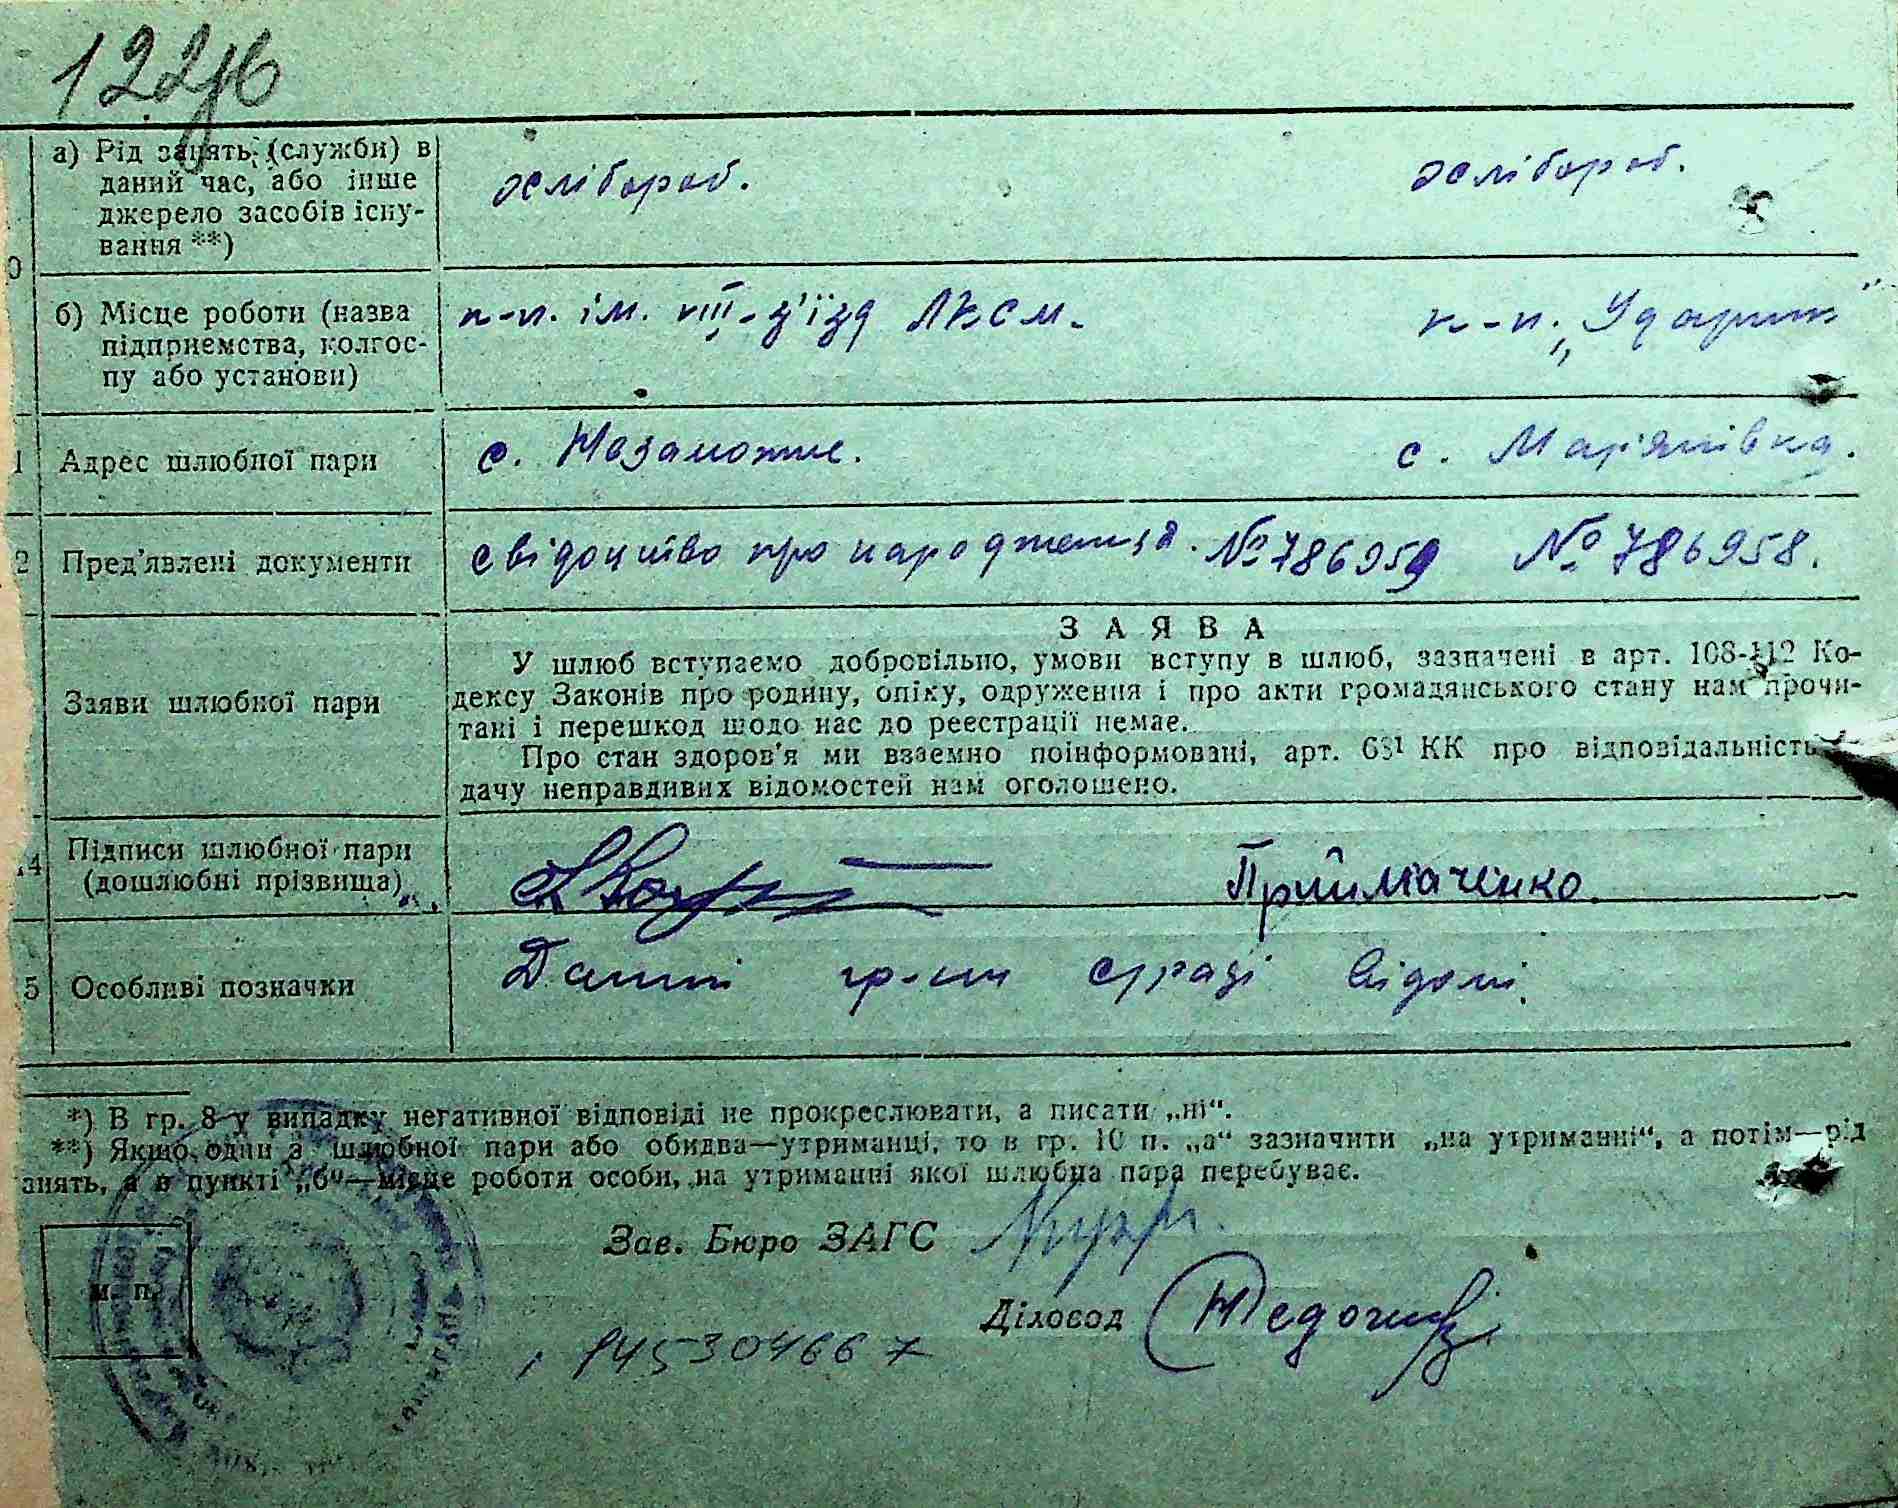 122
а) Рід занять (служби) в
даний час, або інше
джерело засобів існу-
вання **)
хлібороб. хлібороб.
б) Місце роботи (назва
підприємства, колгос-
пу або установи)
к-п. ім. VIII-з'їзд ЛКСМ. к-п. „Ударник"
1 Адрес шлюбної пари с. Незаможне. с. Мар'янівка.
2 Пред'явлені документи свідоцтво про народження. № 786959 № 786958.
Заяви шлюбної пари
ЗАЯВА
У шлюб вступаємо добровільно, умови вступу в шлюб, зазначені в арт. 108-112 Ко-
дексу Законів про родину, опіку, одруження і про акти громадянського стану нам прочи-
тані і перешкод щодо нас до реєстрації немає.
Про стан здоров'я ми взаємно поінформовані, арт. 63¹ КК про відповідальність
дачу неправдивих відомостей нам оголошено.
14 Підписи шлюбної пари
(дошлюбні прізвища)
Приймаченко.
5 Особливі позначки Данні гр-ни сраді відомі.
*) В гр. 8 у випадку негативної відповіді не прокреслювати, а писати „ні“.
**) Якщо один з шлюбної пари або обидва—утриманці, то в гр. 10 п. „а“ зазначити „на утриманні“, а потім—рід
анять, а в пункті „б“—місце роботи особи, на утриманні якої шлюбна пара перебуває.
Зав. Бюро ЗАГС
м. п.
Діловод